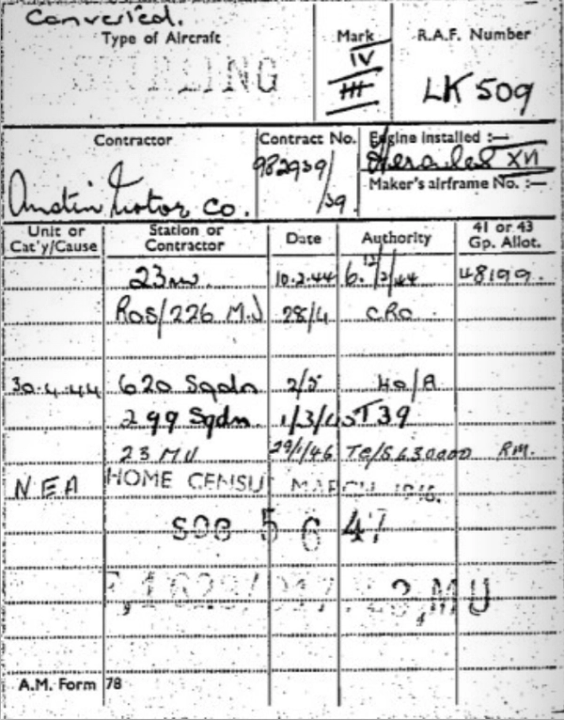 Converted.
Type of Aircraft Mark R.A.F. Number
STIRLING IV III LK 509
Contractor Contract No. Engine installed :—
Austin Motor Co. 982939/39. Hercules XVI
Maker's airframe No. :—
Unit or Cat'y/Cause Station or Contractor Date Authority 41 or 43 Gp. Allot.
23 MU. 10.2.44 48199.
Ros/226 M.U 28/4 CRO
30.4.44 620 Sqdn 2/5 40/A
299 Sqdn. 1/3/45 T39
23 MU 29/1/46 RM.
NEA HOME CENSUS MARCH 1946.
SOC 5 6 47
23,MU
A.M. Form 78